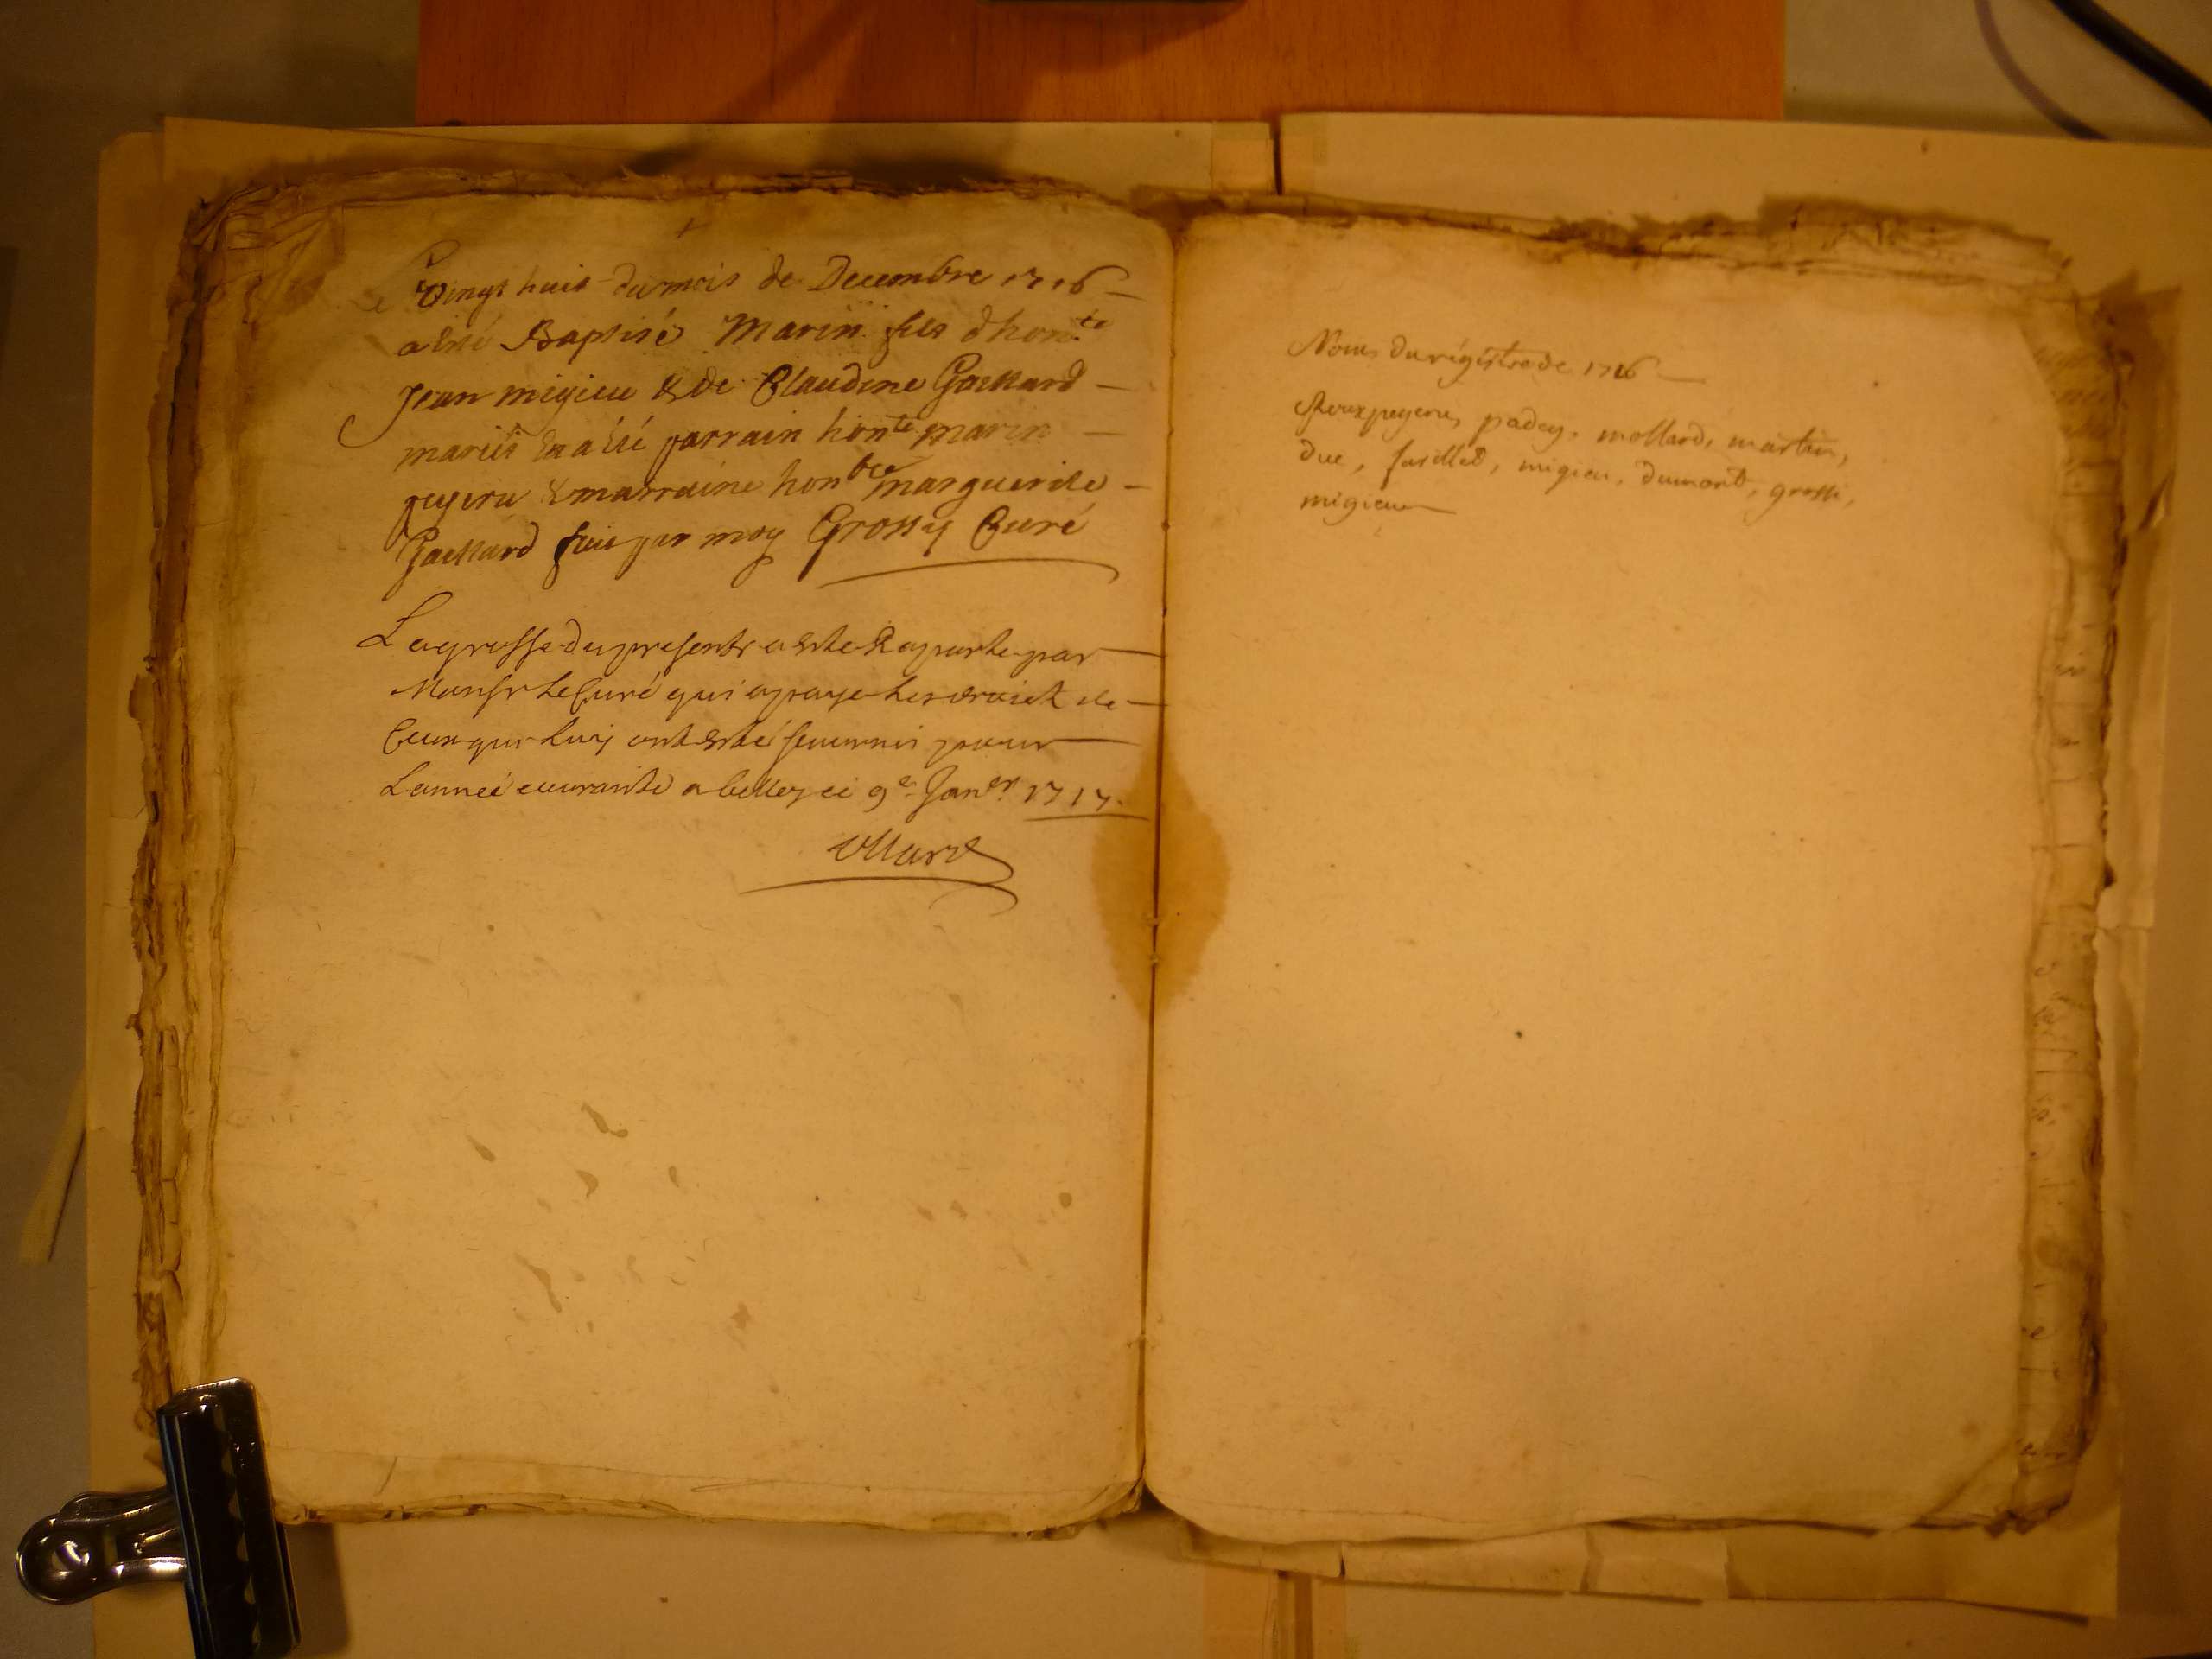 Le vingt huit du mois de Decembre 1716
a esté Baptisé Marin fils d'hon.te
Jean migieu & de Claudine Gaillard
mariés en a été parrain hon.te marin
peyieu & marraine hon.ble marguerite
Gaillard fait par moy Grossy Curé
La grosse du present a esté Raporte par
Monsr Le Curé qui a paye Les droicts de
Ceux qui Luy ont esté fournis pour
L'année courante a belley ce 9e Janer 1717.
Noms du régistre de 1716
padey, mollard, martin,
duc, migieu, dumont, grossi,
migieu